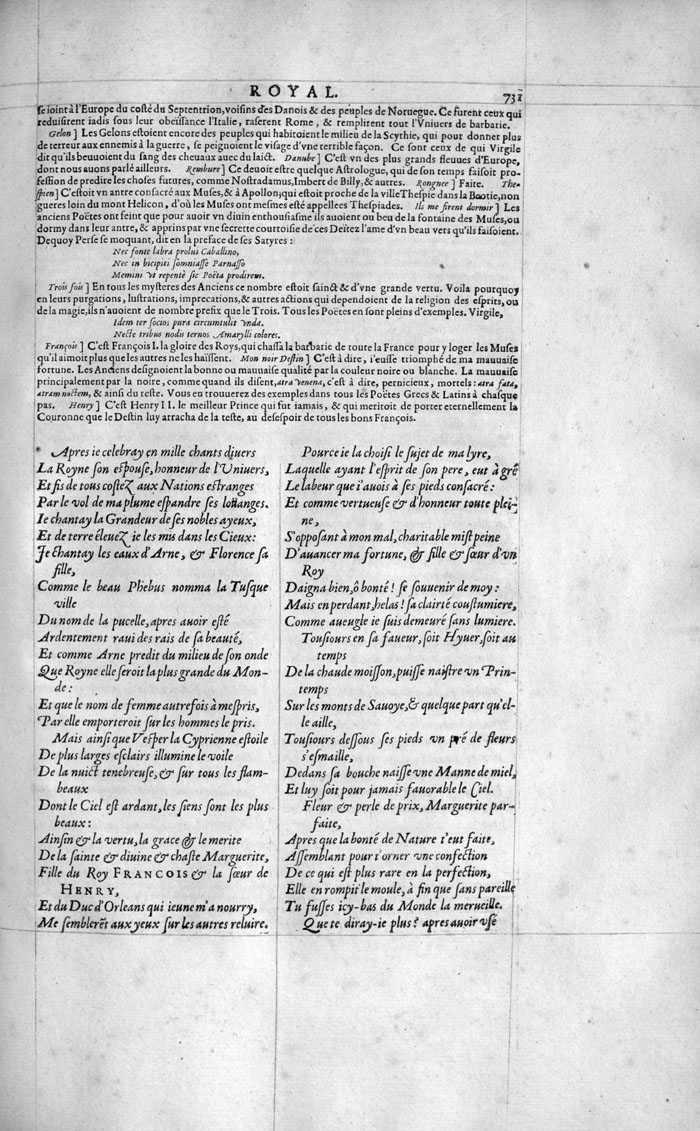 ROYAL.
731
se ioint à l'Europe du costé du Septentrion, voisins des Danois & des peuples de Noruegue. Ce furent ceux qui
reduisirent iadis sous leur obeïssance l'Italie, raserent Rome, & remplirent tout l'Vniuers de barbarie.
Gelon] Les Gelons estoient encore des peuples qui habitoient le milieu de la Scythie, qui pour donner plus
de terreur aux ennemis à la guerre, se peignoient le visage d'vne terrible façon. Ce sont ceux de qui Virgile
dit qu'ils beuuoient du sang des cheuaux auec du laict. Danube] C'est vn des plus grands fleuues d'Europe,
dont nous auons parlé ailleurs. Rembure] Ce deuoit estre quelque Astrologue, qui de son temps faisoit pro-
fession de predire les choses futures, comme Nostradamus, Imbert de Billy, & autres. Rongnee] Faite. The-
spien] C'estoit vn antre consacré aux Muses, & à Apollon, qui estoit proche de la ville Thespie dans la Bœtie, non
gueres loin du mont Helicon, d'où les Muses ont mesmes esté appellees Thespiades. Ils me firent dormir] Les
anciens Poëtes ont feint que pour auoir vn diuin enthousiasme ils auoient ou beu de la fontaine des Muses, ou
dormy dans leur antre, & apprins par vne secrette courtoisie de ces Deïtez l'ame d'vn beau vers qu'ils faisoient.
Dequoy Perse se moquant, dit en la preface de ses Satyres:
Nec fonte labra prolui Caballino,
Nec in bicipiti somniasse Parnasso
Memini vt repentè sic Poëta prodirem.
Trois fois] En tous les mysteres des Anciens ce nombre estoit sainct & d'vne grande vertu. Voila pourquoy
en leurs purgations, lustrations, imprecations, & autres actions qui dependoient de la religion des esprits, ou
de la magie, ils n'auoient de nombre prefix que le Trois. Tous les Poëtes en sont pleins d'exemples. Virgile,
Idem ter socios pura circumtulit vnda.
Necte tribus nodis ternos Amarylli colores.
François] C'est François I. la gloire des Roys, qui chassa la barbarie de toute la France pour y loger les Muses
qu'il aimoit plus que les autres ne les haïssent. Mon noir Destin] C'est à dire, i'eusse triomphé de ma mauuaise
fortune. Les Anciens designoient la bonne ou mauuaise qualité par la couleur noire ou blanche. La mauuaise
principalement par la noire, comme quand ils disent, atra venena, c'est à dire, pernicieux, mortels: atra fata,
atram noctem, & ainsi du reste. Vous en trouuerez des exemples dans tous les Poëtes Grecs & Latins à chasque
pas. Henry] C'est Henry II. le meilleur Prince qui fut iamais, & qui meritoit de porter eternellement la
Couronne que le Destin luy arracha de la teste, au desespoir de tous les bons François.
Apres ie celebray en mille chants diuers
La Royne son espouse, honneur de l'Vniuers,
Et fis de tous costez aux Nations estranges
Par le vol de ma plume espandre ses loüanges.
Ie chantay la Grandeur de ses nobles ayeux,
Et de terre éleuez ie les mis dans les Cieux:
Ie chantay les eaux d'Arne, & Florence sa
fille,
Comme le beau Phebus nomma la Tusque
ville
Du nom de la pucelle, apres auoir esté
Ardentement raui des rais de sa beauté,
Et comme Arne predit du milieu de son onde
Que Royne elle seroit la plus grande du Mon-
de:
Et que le nom de femme autrefois à mespris,
Par elle emporteroit sur les hommes le pris.
Mais ainsi que Vesper la Cyprienne estoile
De plus larges esclairs illumine le voile
De la nuict tenebreuse, & sur tous les flam-
beaux
Dont le Ciel est ardant, les siens sont les plus
beaux:
Ainsin & la vertu, la grace & le merite
De la sainte & diuine & chaste Marguerite,
Fille du Roy FRANCOIS & la sœur de
HENRY,
Et du Duc d'Orleans qui ieune m'a nourry,
Me semblerẽt aux yeux sur les autres reluire.
Pource ie la choisi le sujet de ma lyre,
Laquelle ayant l'esprit de son pere, eut à gré
Le labeur que i'auois à ses pieds consacré:
Et comme vertueuse & d'honneur toute plei-
ne,
S'opposant à mon mal, charitable mist peine
D'auancer ma fortune, & fille & sœur d'vn
Roy
Daigna bien, ô bonté! se souuenir de moy:
Mais en perdant, helas! sa clairté coustumiere,
Comme aueugle ie suis demeuré sans lumiere.
Tousiours en sa faueur, soit Hyuer, soit au
temps
De la chaude moisson, puisse naistre vn Prin-
temps
Sur les monts de Sauoye, & quelque part qu'el-
le aille,
Tousiours dessous ses pieds vn pré de fleurs
s'esmaille,
Dedans sa bouche naisse vne Manne de miel,
Et luy soit pour jamais fauorable le Ciel.
Fleur & perle de prix, Marguerite par-
faite,
Apres que la bonté de Nature t'eut faite,
Assemblant pour t'orner vne confection
De ce qui est plus rare en la perfection,
Elle en rompit le moule, à fin que sans pareille
Tu fusses icy-bas du Monde la merueille.
Que te diray-ie plus? apres auoir vsé